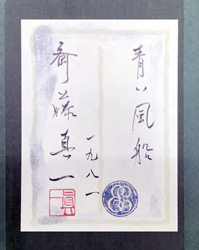 青い風船
一九八一
斎藤真一